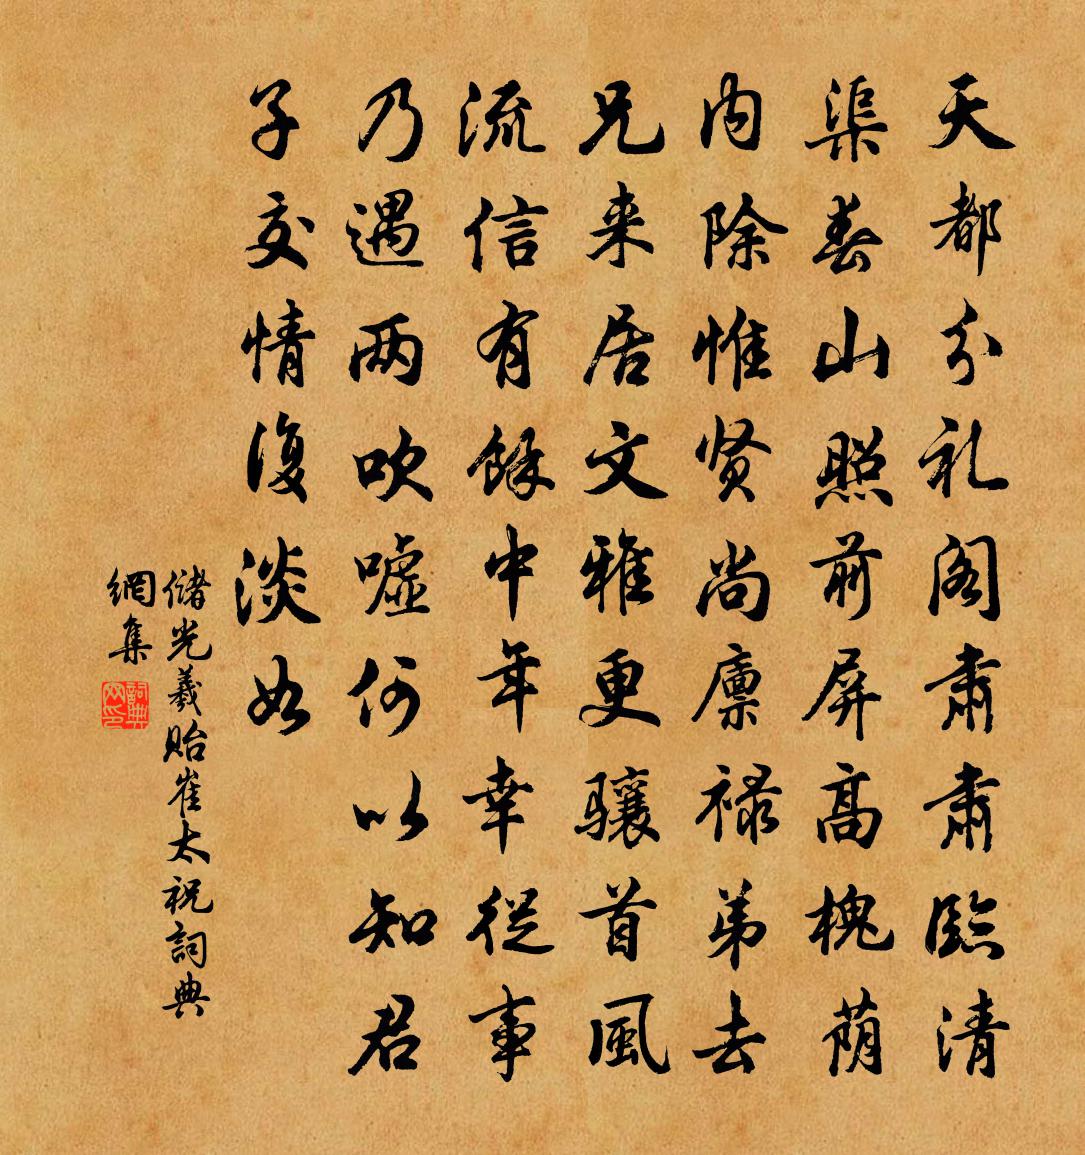 天都分礼阁肃肃临清
渠春山照前屏高槐荫
内除惟贤尚廪禄弟去
兄来居文雅更骧首風
流信有餘中年幸從事
乃遇两吹嘘何以知君
子交情復淡如
儲光羲貽崔太祝詞典
網集
詞典网印